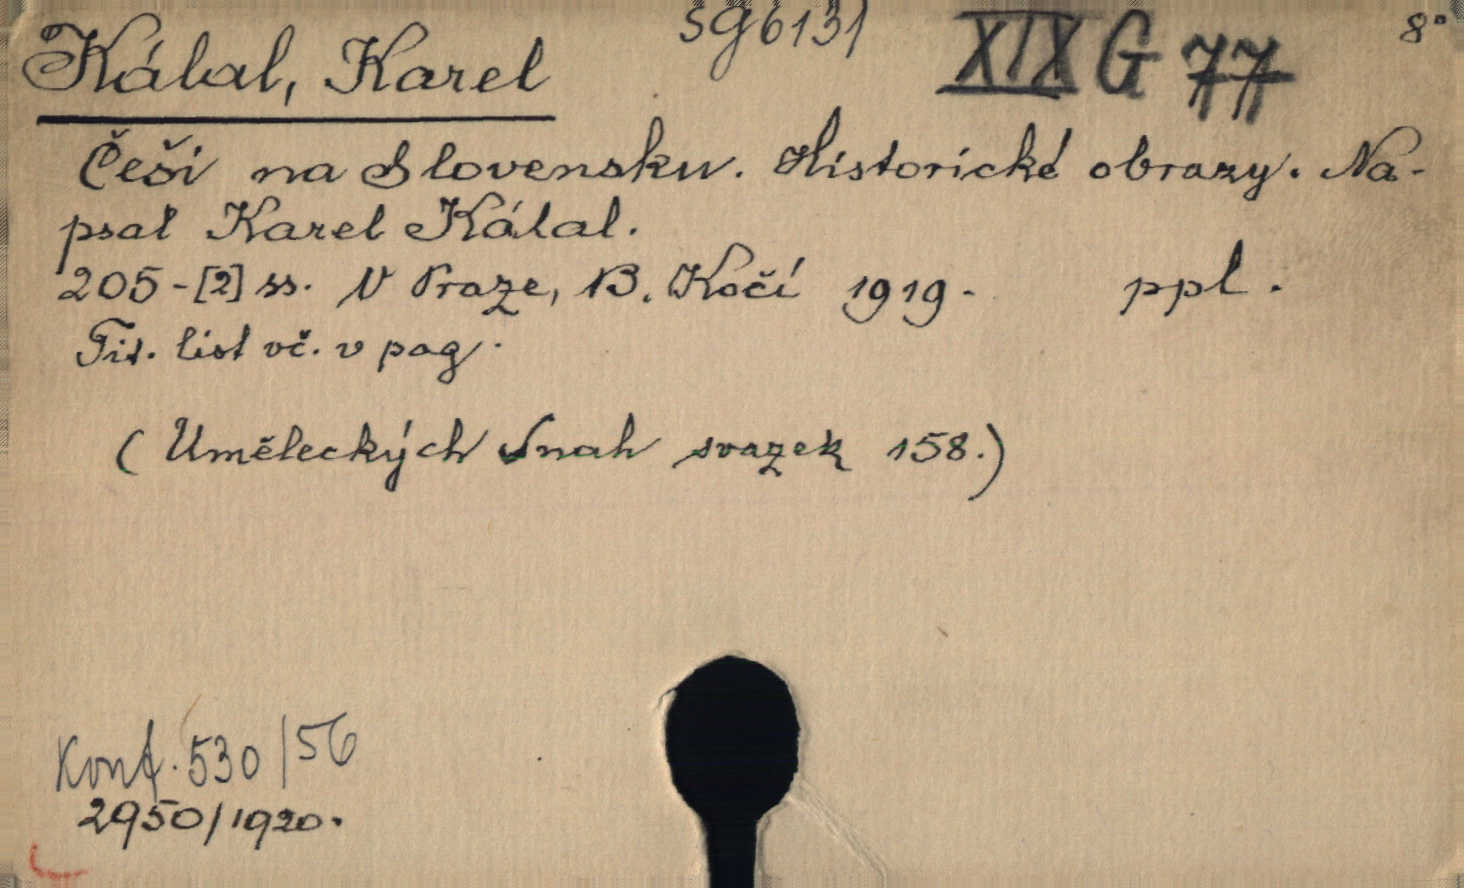 Kálal, Karel
SG6131
XIX G 77
8°
Češi na Slovensku. Historické obrazy. Na-
psal Karel Kálal.
205-[2] ss. V Praze, B. Kočí 1919. ppl.
Tit. list vč. v pag.
(Uměleckých Snah svazek 158.)
Konf. 530/56
2950/1920.